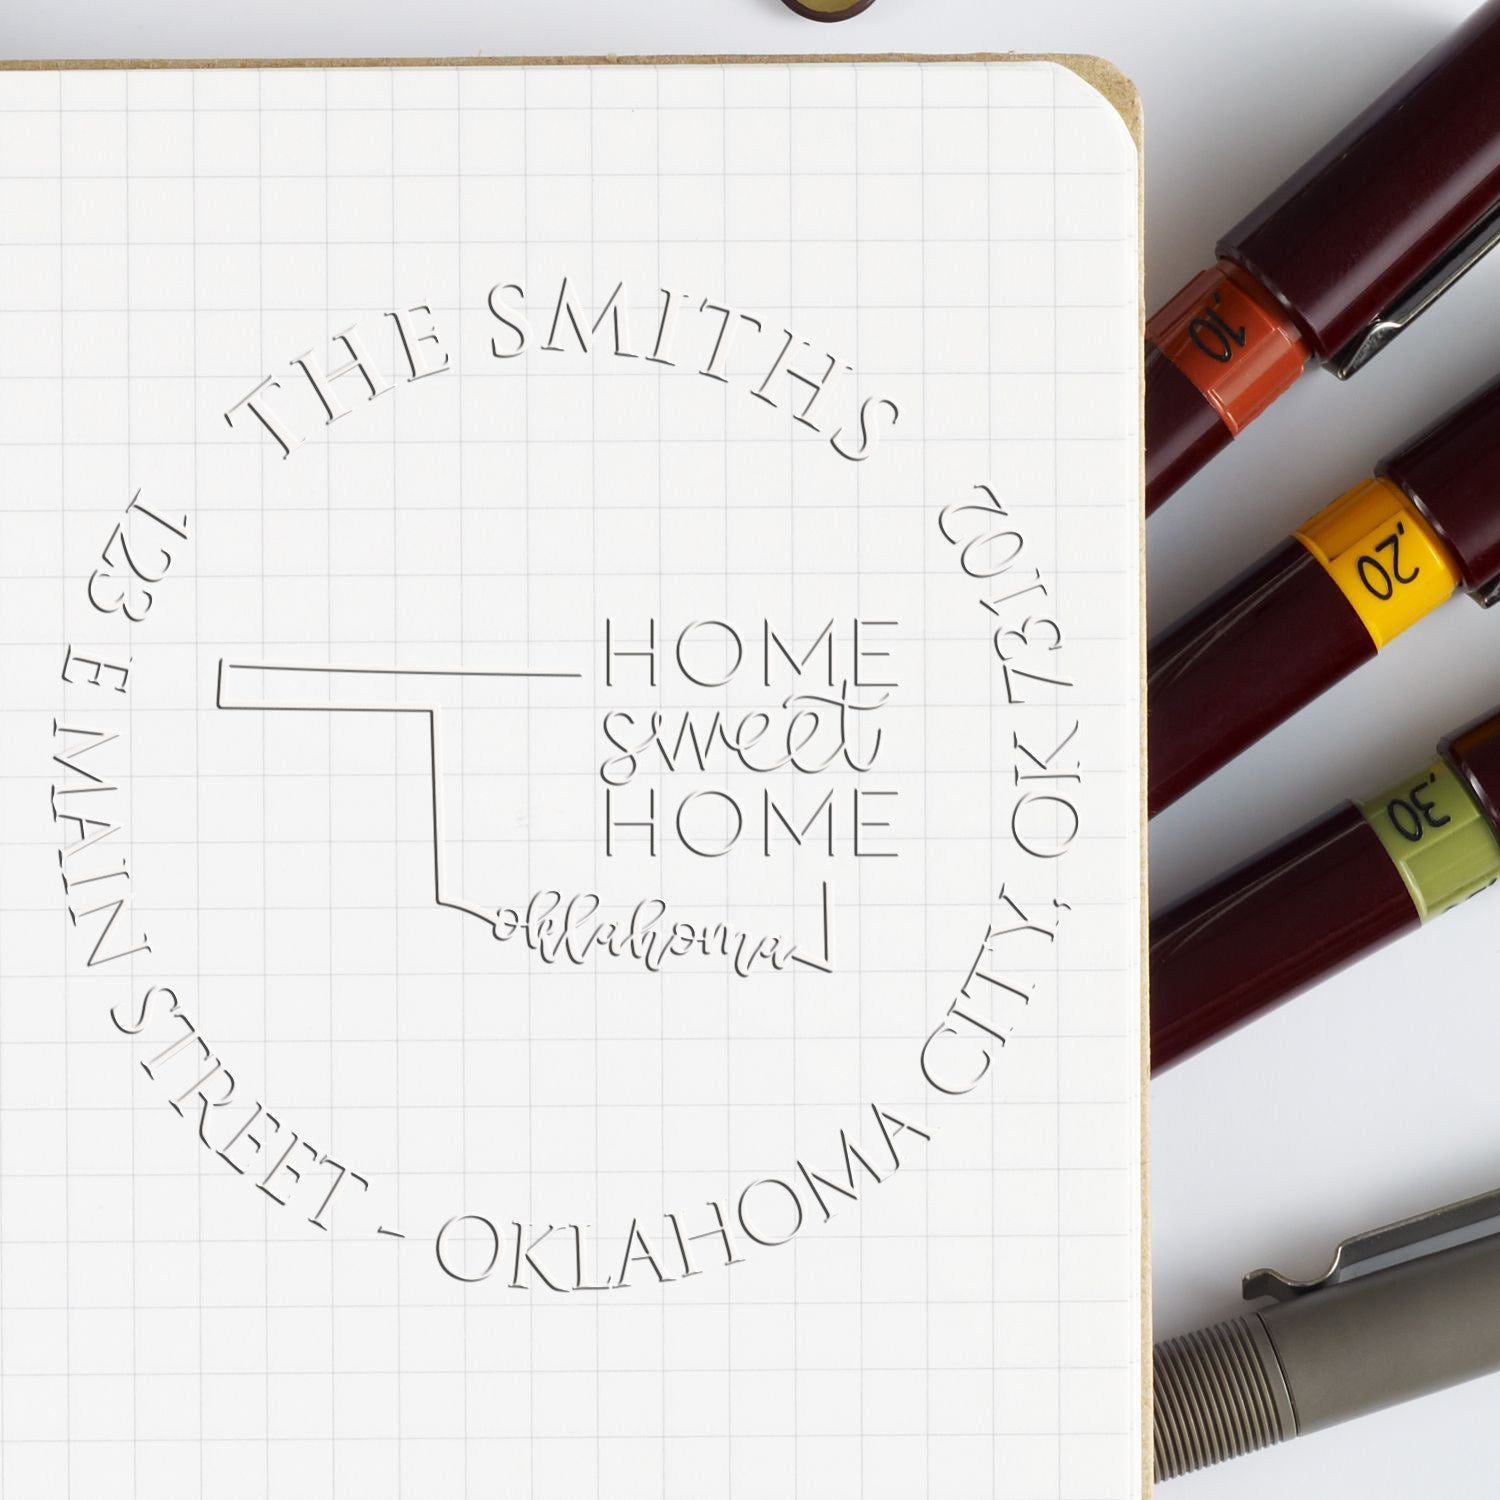 THE SMITHS
123 E MAIN STREET - OKLAHOMA CITY, OK 73102
HOME
sweet
HOME
oklahoma
.10
.20
.30